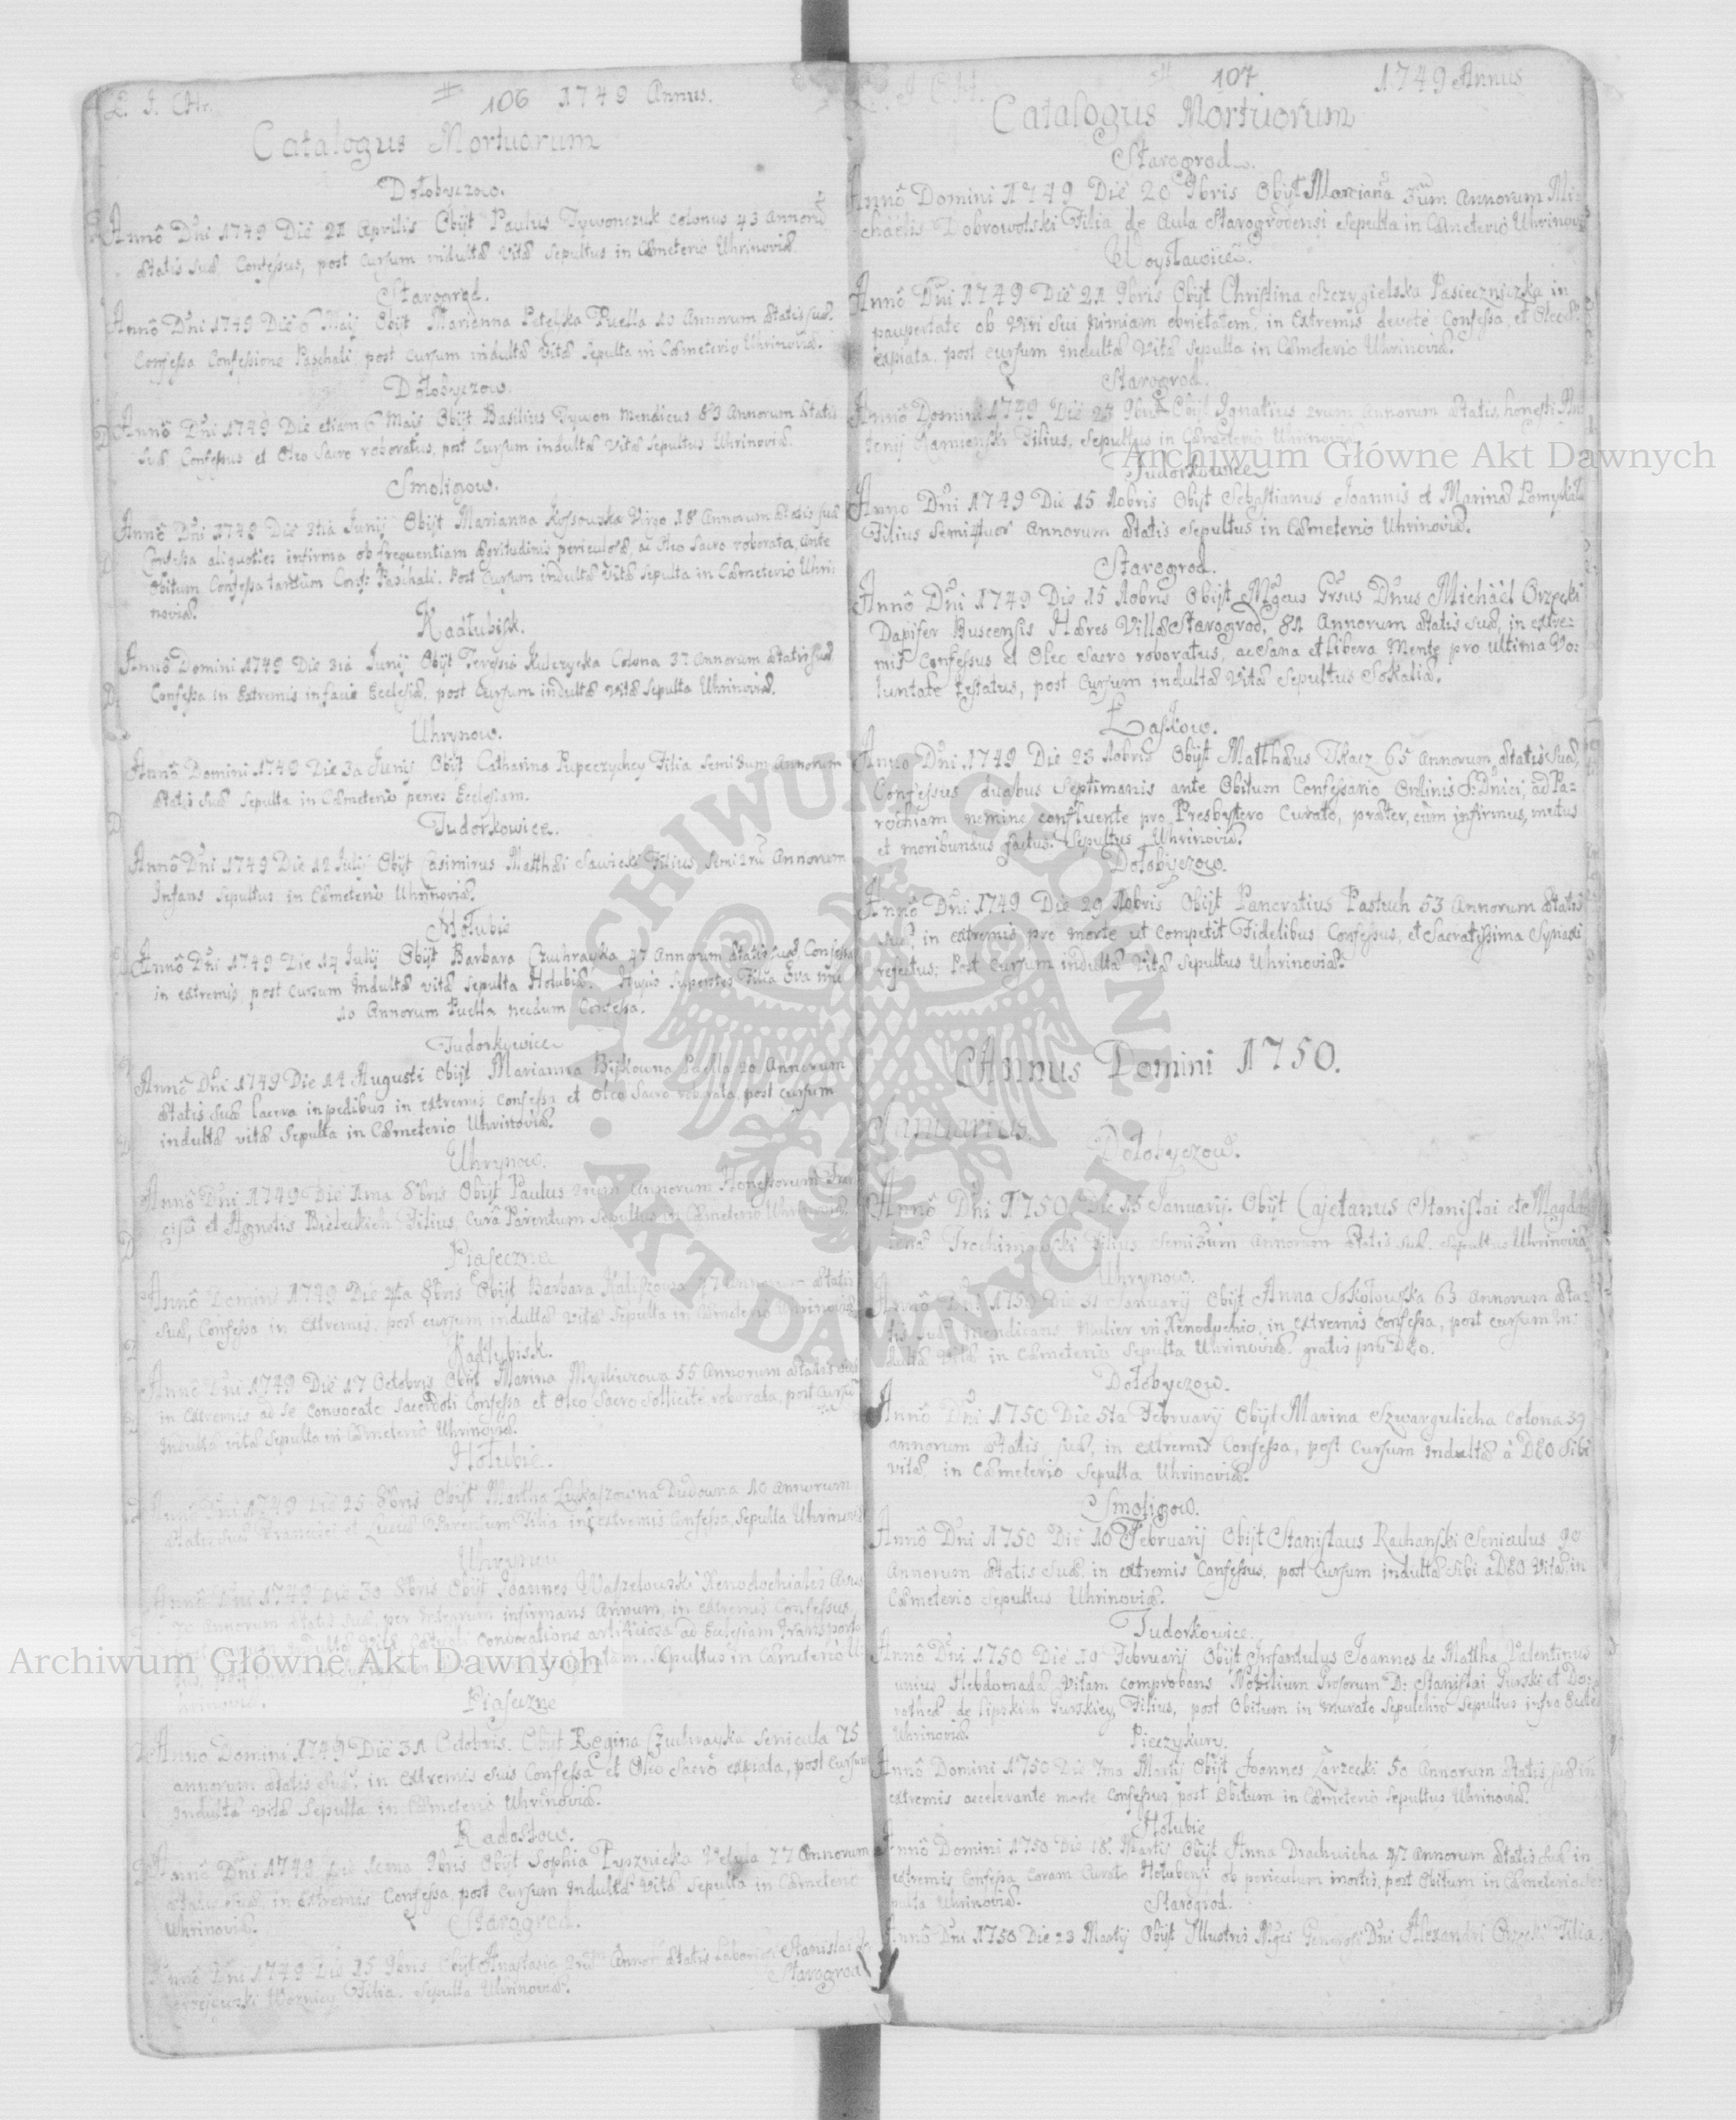 106 1749 Annus.
Catalogus Mortuorum
Dołobyczow.
Annô Dñi 1749 Die 21 Aprilis Obijt Paulus Tywonczuk Colonus 43 Annorũ
Ætatis suæ, Confessus, post Cursum indultæ Vitæ Sepultus in Cæmeterio Uhrinoviæ.
Starogrod.
Annô Dñi 1749 Die 6 Maij Obijt Marianna Petelska Puella 10 Annorum Ætatis suæ
Confessa Confessione Paschali, post Cursum indultæ Vitæ Sepulta in Cæmeterio Uhrinoviæ.
Dołobyczow.
Annô Dñi 1749 Die etiam 6 Maij Obijt Basilius Tywon Mendicus 83 Annorum Ætatis
suæ Confessus et Oleo Sacro roboratus, post Cursum indultæ Vitæ Sepultus Uhrinoviæ.
Smoligow.
Annô Dñi 1749 Die 3tia Junij Obijt Marianna Kossowska Virgo 18 Annorum Ætatis suæ
Confessa aliquoties infirma ob frequentiam ægritudinis periculosæ, ac Oleo Sacro roborata, ante
Obitum Confessa tantum Conf: Paschali. Post Cursum indultæ Vitæ Sepulta in Cæmeterio Uhri-
noviæ.
Kadłubisk.
Annô Domini 1749 Die 3tia Junij Obijt Teressia Kulczycka Colona 37 Annorum Ætatis suæ,
Confessa in Extremis in facie Ecclesiæ, post Cursum indultæ Vitæ Sepulta Uhrinoviæ.
Uhrynow.
Annô Domini 1749 Die 3a Junij Obijt Catharina Pupeczychey Filia Semi3um Annorum
Ætatis Suæ Sepulta in Cæmeterio penes Ecclesiam.
Tudorkowice.
Annô Dñi 1749 Die 12 Julij Obijt Casimirus Matthæi Sawicki Filius, Semi2rũ Annorum
Infans Sepultus in Cæmeterio Uhrinoviæ.
Hołubie
Annô Dñi 1749 Die 14 Julij Obijt Barbara Czuhrayka 47 Annorum Ætatis suæ, Confessa
in extremis, post Cursum indultæ vitæ Sepulta Hołubiæ. Hujus Superstes Filia Eva
10 Annorum Puella necdum Confessa.
Tudorkowice
Annô Dñi 1749 Die 14 Augusti Obijt Marianna Puella 20 Annorum
Ætatis suæ lacera in pedibus in extremis Confessa et Oleo Sacro roborata, post Cursum
indultæ vitæ Sepulta in Cæmeterio Uhrinoviæ.
Uhrynow.
Annô Dñi 1749 Die 1ma 8bris Obijt Paulus Annorum Honestorum
et Agnetis Filius, Curâ Parentum Sepultus in Cæmeterio Uhrinoviæ.
Piaseczno
Annô Domini 1749 Die 4ta 8bris Obijt Barbara Kaliszowa 47 Annorum Ætatis
Suæ, Confessa in Extremis, post cursum indultæ vitæ Sepulta in Cæmeterio Uhrinoviæ.
Kadłubisk.
Annô Dñi 1749 Die 17 Octobris Obijt Marina Mysliwzowa 55 Annorum Ætatis suæ
in Extremis ad se Convocato Sacerdoti Confessa et Oleo Sacro Sollicitè roborata, post Cursũ
Indultæ vitæ Sepulta in Cæmeterio Uhrinoviæ.
Hołubie.
Annô Dñi 1749 Die 25 8bris Obijt Martha Łukaszowna Dudowna 10 Annorum
Ætatis suæ Francisci et Luciæ Parentum Filia in extremis Confessa, Sepulta Uhrinoviæ
Uhrynow
Annô Dñi 1749 Die 30 8bris Obijt Joannes Waszelowski Xenodochialis Avus
70 Annorum Ætatis suæ, per Integrum infirmans Annum, in extremis Confessus,
convocatione ad Ecclesiam
Sepultus in Cæmeterio U-
hrinoviæ.
Piaseczno
Annô Domini 1749 Die 31 Octobris. Obijt Regina Czuhrayka Senicula 75
annorum Ætatis suæ. in Extremis suis Confessa et Oleo Sacro expiata, post Cursum
Indultæ vitæ Sepulta in Cæmeterio Uhrinoviæ.
Radostow.
Annô Dñi 1749 Die 9bris Obijt Sophia Pysznicka Vetula 77 Annorum
Ætatis suæ, in Extremis Confessa post Cursum Indultæ Vitæ Sepulta in Cæmeterio
Uhrinoviæ.
Starogrod.
Annô Dñi 1749 Die 15 9bris Obijt Anastasia Annor Ætatis Stanislai
Filia. Sepulta Uhrinoviæ.
Starogrod
107 1749 Annus
Catalogus Mortuorum
Starogrod.
Annô Domini 1749 Die 20 9bris Obijt Marcianã 3um Annorum Mi-
chaëlis Dobrowolski Filia de Aula Starogrodensi Sepulta in Cæmeterio Uhrinoviæ
Woysławice.
Annô Dñi 1749 Die 21 9bris Obijt Christina Szczygielska Pasiecznyczka in
paupertate ob Viri Sui nimiam ebrietatem, in extremis devotè Confessa, et Oleo S.
expiata, post cursum indultæ Vitæ Sepulta in Cæmeterio Uhrinoviæ.
Starogrod.
Annô Domini 1749 Die 27 9bris Obijt Ignatius 2rum Annorum Ætatis, honesti An-
tonij Kamienski Filius, Sepultus in Cæmeterio Uhrinoviæ
Tudorkowice
Anno Dñi 1749 Die 15 Xobris Obijt Sebastianus Joannis et Marinæ
Filius Semiquor Annorum Ætatis Sepultus in Cæmeterio Uhrinoviæ.
Starogrod.
Annô Dñi 1749 Die 15 Xobris Obijt Mgcus Grsus Dnus Michäel Orzęcki
Dapifer Buscensis Hæres Villæ Starogrod, 81 Annorum Ætatis suæ, in extre-
mis Confessus et Oleo Sacro roboratus, ac Sana et libera Mente pro ultima Vo-
luntate testatus, post Cursum indultæ Vitæ Sepultus Sokaliæ.
Łaskow.
Anno Dñi 1749 Die 23 Xobris Obijt Matthæus Tkacz 65 Annorum Ætatis Suæ,
Confessus duabus Septimanis ante Obitum Confessario Ordinis S: Dnici, ad Pa-
rochiam nemine confluente pro Presbytero Curato, præter, cùm infirmus, metus
et moribundus factus. Sepultus Uhrinoviæ.
Dołobyczow.
Annô Dñi 1749 Die 29 Xobris Obijt Pancratius Pastuch 53 Annorum Ætatis
Suæ, in extremis pro morte ut competit Fidelibus Confessus, et Sacratissima Synaxi
refectus; Post Cursum indultæ Vitæ Sepultus Uhrinoviæ.
Annus Domini 1750.
Januarius.
Dołobyczow.
Annô Dñi 1750 Die 15 Januarij. Obijt Cajetanus Stanislai et Magda-
lenæ Trochimowski Filius Semi3um Annorum Ætatis suæ. Sepultus Uhrinoviæ
Uhrynow.
Annô Dñi 1750 Die 31 Januarij Obijt Anna Sokołowska 63 Annorum Æta-
tis suæ Mendicans Mulier in Xenodochio, in extremis Confessa, post cursum in-
dultæ Vitæ in Cæmeterio Sepulta Uhrinoviæ gratis pro DEO.
Dołobyczow.
Annô Dñi 1750 Die 5ta Februarij Obijt Marina Szwargulicha Colona 39
annorum Ætatis suæ, in extremis Confessa, post Cursum indultæ à DEO Sibi
vitæ, in Cæmeterio Sepulta Uhrinoviæ.
Smoligow.
Annô Dñi 1750 Die 10 Februarij Obijt Stanislaus Rachanski Seniculus 90
Annorum Ætatis Suæ, in extremis Confessus, post Cursum indultæ Sibi à DEO Vitæ, in
Cæmeterio Sepultus Uhrinoviæ.
Tudorkowice.
Annô Dñi 1750 Die 19 Februarij Obijt Infantulus Joannes de Mattha Valentinus
unius Hebdomadæ Vitam comprobans Nobilium Grosorum D: Stanislai Gurski et Do-
rotheæ de Lipskich Gurskiey, Filius, post Obitum in murato Sepulchro Sepultus infra Eccle
Uhrinoviæ.
Pieczykury.
Annô Domini 1750 Die 7ma Martij Obijt Joannes Zarzecki 50 Annorum Ætatis suæ in
extremis accelerante morte Confessus, post Obitum in Cæmeterio Sepultus Uhrinoviæ.
Hołubie
Annô Domini 1750 Die 18. Martij Obijt Anna Drachwicha 47 Annorum Ætatis suæ in
extremis Confessa Coram Curato Hołubensi ob periculum mortis, post Obitum in Cæmeterio Se-
pulta Uhrinoviæ.
Starogrod.
Annô Dñi 1750 Die 23 Martij Obijt Illustris Mgci Generosi Dñi Alexandri Orzęcki Filia.
Archiwum Główne Akt Dawnych
Archiwum Główne Akt Dawnych
ARCHIWUM GŁÓWNE AKT DAWNYCH